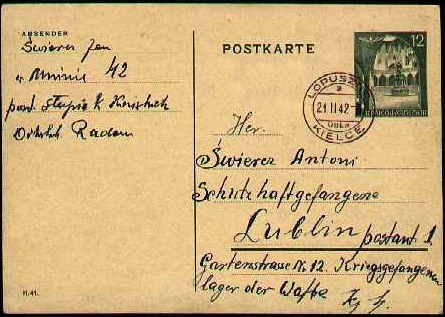 ABSENDER
Świerez Jan
w Mninie 42
post. Słupia k.
Distrikt. Radom
H.41.
POSTKARTE
12
GENERALGOUVERNEMENT
LOPUSZNO
a
21 II 42
ÜBER
KIELCE
Her.
Świerez Antoni
Schutzhaftgefangene
Lublin postamt 1.
Gartenstrasse Nr. 12. Kriegsgefangenen
lager der Waffe